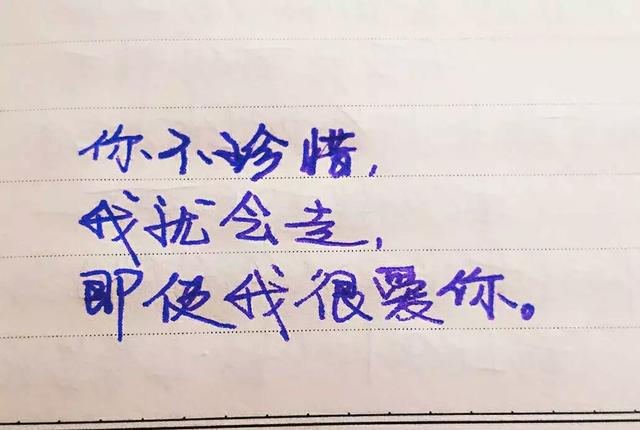 你不珍惜，
我就会走，
即使我很爱你。